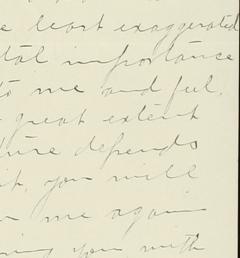 e least exaggerated
tal importance
to me and feel,
great extent
ture depends
it, you will
me again
you with